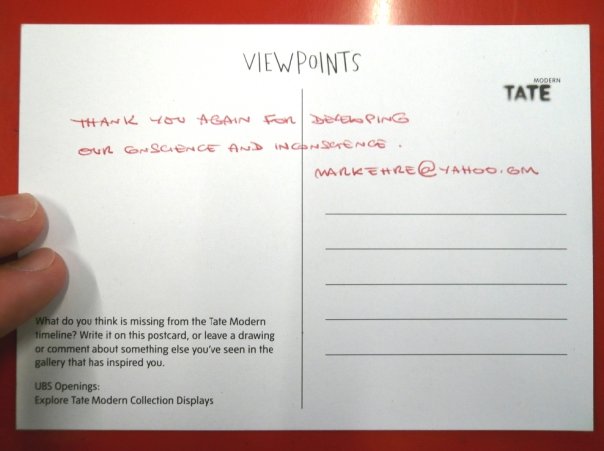 VIEWPOINTS
MODERN
TATE
THANK YOU AGAIN FOR DEVELOPING
OUR CONSCIENCE AND INCONSCIENCE.
MARKEHRE@YAHOO.COM
What do you think is missing from the Tate Modern
timeline? Write it on this postcard, or leave a drawing
or comment about something else you've seen in the
gallery that has inspired you.
UBS Openings:
Explore Tate Modern Collection Displays